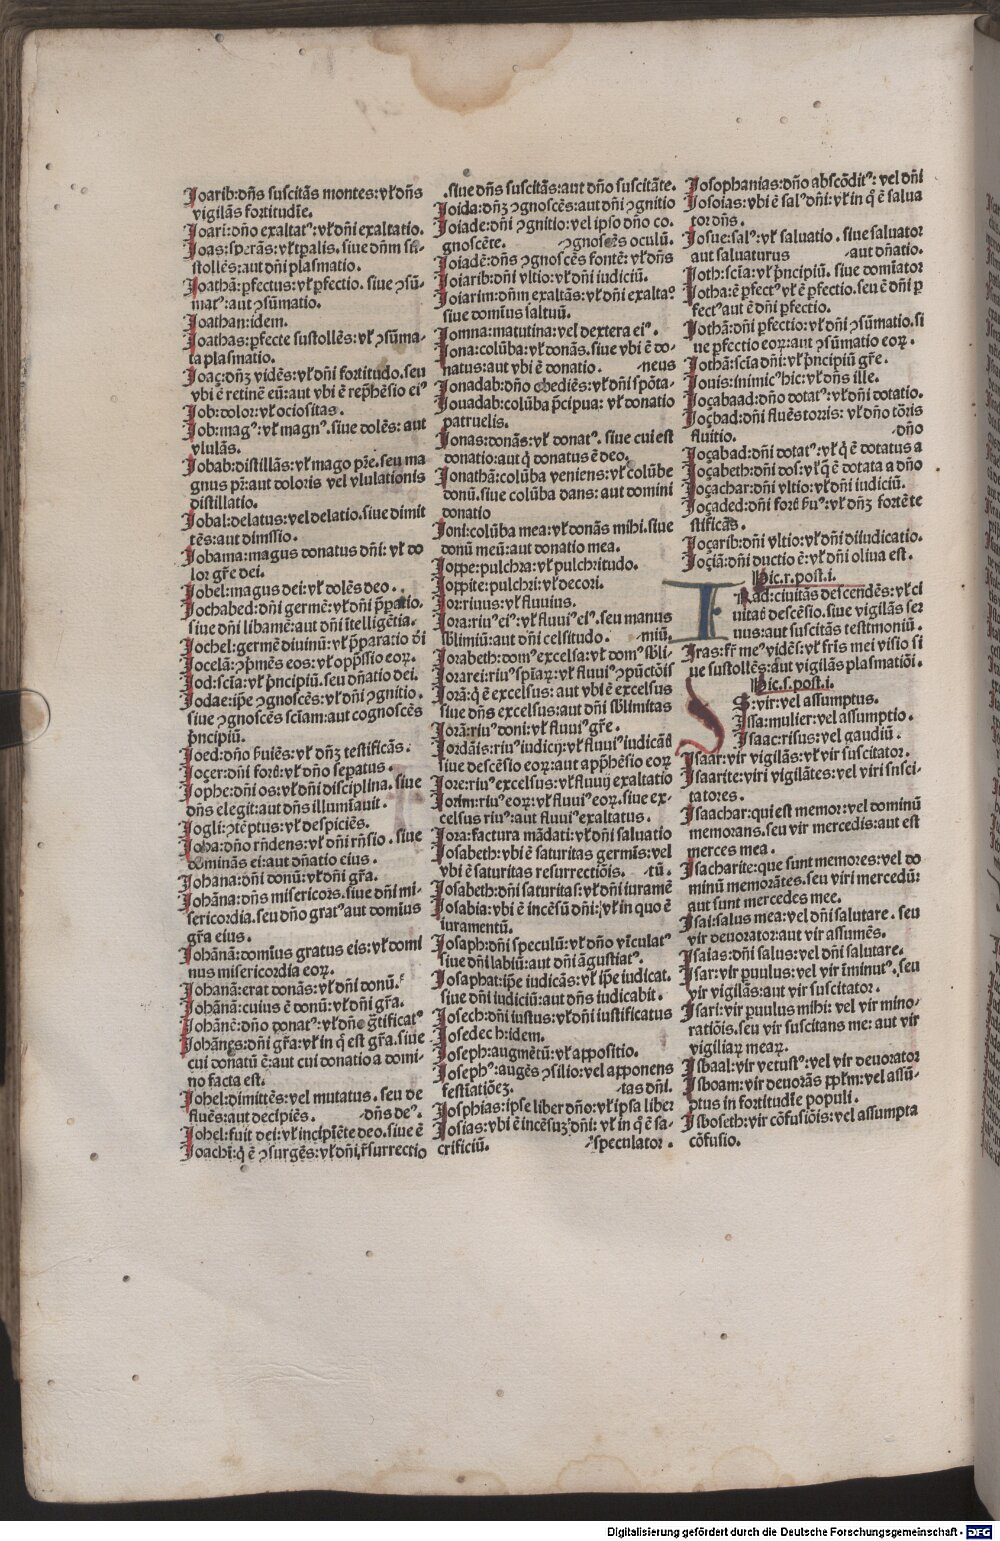 Joarib:dn̄s suscitās montes:vł dn̄s
vigilās fortitudīe.
Joari:dn̄o exaltatꝰ:vł dn̄i exaltatio.
Joas:sperās:vł tꝑalis. siue dn̄m su-
stollēs:aut dn̄i plasmatio.
Joathā:ꝑfectus:vł ꝑfectio. siue ꝯsū-
matꝰ:aut ꝯsūmatio.
Joathan:idem.
Joathas:ꝑfecte sustollēs:vł ꝯsūma-
ta plasmatio.
Joaç:dn̄ꝫ vidēs:vł dn̄i fortitudo.seu
vbi ē retinē eū:aut vbi ē rep̄hēsio eiꝰ
Job:dolor:vł ociositas.
Job:magꝰ:vł magnꝰ. siue dolēs: aut
vlulās.
Jobab:distillās:vł mago pr̄e.seu ma
gnus pr̄:aut doloris vel vlulationis
distillatio.
Jobal:delatus:vel delatio.siue dimit
tēs:aut dimssio.
Jobama:magus donatus dn̄i: vł do
lor gr̄e dei.
Jobel:magus dei:vł dolēs deo.
Jochabed:dn̄i germē:vł dn̄i p̄ꝑatio.
siue dn̄i libamē:aut dn̄i ītelligētia.
Jochel:germē diuinū:vł p̄ꝑaratio d̄i
Jocelā:ꝯp̄mēs eos:vł opp̄ssio eoꝝ.
Jod:scīa:vł p̄ncipiū.seu dn̄atio dei.
Jodae:ip̄e ꝯgnoscēs:vł dn̄i ꝯgnitio.
siue ꝯgnoscēs scīam:aut cognoscēs
p̄ncipiū.
Joed:dn̄o ẜuiēs:vł dn̄ꝫ testificās.
Joçer:dn̄i forẜ:vł dn̄o seꝑatus.
Jophe:dn̄i os:vł dn̄i disciplina. siue
dn̄s elegit:aut dn̄s illumīauit.
Jogli:ꝯtēptus:vł despiciēs.
Joha:dn̄o rn̄dens:vł dn̄i rn̄sio. siue
dominās ei:aut dn̄atio eius.
Johana:dn̄i donū:vł dn̄i gr̄a.
Johāna:dn̄s misericors.siue dn̄i mi-
sericordia.seu dn̄o gratꝰ aut domīus
gr̄a eius.
Johānā:domīus gratus eis:vł domi
nus misericordia eoꝝ.
Johanā:erat donās:vł dn̄i donū.
Johānā:cuius ē donū:vł dn̄i gr̄a.
Johānē:dn̄o donatꝰ:vł dn̄o gr̄tificatꝰ
Johānes:dn̄i gr̄a:vł in q̄ est gr̄a.siue
cui donatū ē:aut cui donatio a domi-
no facta est.
Johel:dimittēs:vel mutatus. seu de
fluēs:aut decipiēs. -dn̄s deꝰ.
Johel:fuit dei:vł incipiēte deo.siue ē
Joachī:q̄ ē ꝯsurgēs:vł dn̄i,r̄surrectio
.siue dn̄s suscitās:aut dn̄o suscitāte.
Joida:dn̄ꝫ ꝯgnoscēs:aut dn̄i ꝯgnitio
Joiade:dn̄i ꝯgnitio:vel ipso dn̄o co.
gnoscēte. -ꝯgnoscēs oculū.
Joiadē:dn̄s ꝯgnoscēs fontē:vł dn̄s
Joiarib:dn̄i vltio:vł dn̄i iudiciū.
Joiarim:dn̄m exaltās:vł dn̄i exaltaꝰ
siue domīus saltuū.
Jomna:matutina:vel dextera eiꝰ.
Jona:colūba:vł donās.siue vbi ē do-
natus:aut vbi ē donatio. -neus
Jonadab:dn̄o obediēs:vł dn̄i spōta-
Jouadab:colūba p̄cipua: vł donatio
patruelis.
Jonas:donās:vł donatꝰ. siue cui est
donatio:aut q̄ donatus ē deo.
Jonathā:colūba veniens:vł colūbe
donū.siue colūba dans: aut domini
donatio
Joni:colūba mea:vł donās mihi.siue
donū meū:aut donatio mea.
Joppe:pulchra:vł pulchritudo.
Joppite:pulchri:vł decori.
Jor:riuus:vł fluuius.
Jora:riuꝰ eiꝰ:vł fluuiꝰ eiꝰ.seu manus
sb̄limiū:aut dn̄i celsitudo. -miū.
Jorabeth:domꝰ excelsa:vł domꝰ sb̄li-
Jorarei:riuꝰ spīaꝝ:vł fluuiꝰ ꝯpūctōīs
Jorā:q̄ ē excelsus: aut vbi ē excelsus
siue dn̄s excelsus:aut dn̄i sb̄limitas
Jorā:riuꝰ doni:vł fluuiꝰ gr̄e.
Jordāis:riuꝰ iudicij:vł fluuiꝰ iudicād̄
siue descēsio eoꝝ:aut app̄hēsio eoꝝ
Jore:riuꝰ excelsus:vł fluuij exaltatio
Jorim:riuꝰ eoꝝ:vł fluuiꝰ eoꝝ.siue ex-
celsus riuꝰ:aut fluuiꝰ exaltatus.
Jora:factura mādati:vł dn̄i saluatio
Josabeth:vbi ē saturitas germīs:vel
vbi ē saturitas resurrectiōis. -tū.
Josabeth:dn̄i saturitas:vł dn̄i iuramē
Josabia:vbi ē incēsū dn̄i:vł in quo ē
iuramentū.
Josaph:dn̄i speculū:vł dn̄o vīculatꝰ
siue dn̄i labiū:aut dn̄i āgustiatꝰ.
Josaphat:ip̄e iudicās:vł ip̄e iudicat.
siue dn̄i iudiciū:aut dn̄s iudicabit.
Josech:dn̄i iustus:vł dn̄i iustificatus
Josedech:idem.
Joseph:augmētū:vł appositio.
Josephꝰ:augēs ꝯsilio:vel apponens
festīatiōeꝫ. -tas dn̄i.
Josphias:ipse liber dn̄o:vł ipsa liber
Josias:vbi ē incēsuꝫ dn̄i: vł in q̊ ē sa-
crificiū. -speculator.
Josophanias:dn̄o abscōditꝰ: vel dn̄i
Josoias:vbi ē salꝰ dn̄i:vł in q̊ ē salua
tor dn̄s.
Josue:salꝰ:vł saluatio. siue saluator
aut saluaturus -aut dn̄atio.
Joth:scīa:vł p̄ncipiū. siue domīator
Jotha:ē ꝑfectꝰ vł ē ꝑfectio.seu ē dn̄i ꝑ
fectꝰ aut ē dn̄i ꝑfectio.
Jothā:dn̄i ꝑfectio:vł dn̄i ꝯsūmatio.si
ue ꝑfectio eoꝝ:aut ꝯsūmatio eoꝝ.
Jothā:scīa dn̄i:vł p̄ncipiū gr̄e.
Jouis:inimicꝰ hic:vł dn̄s ille.
Joçabaad:dn̄o dotatꝰ:vł dn̄i dotatio.
Joçbad:dn̄i fluēs torris: vł dn̄o tōris
fluitio. -dn̄o
Joçabad:dn̄i dotatꝰ:vł q̄ ē dotatus a
Joçabeth:dn̄i dos:vł q̄ ē dotata a dn̄o
Joçachar:dn̄i vltio:vł dn̄i iudiciū.
Joçaded:dn̄i forẜ ẜuꝰ:vł dn̄ꝫ fortē te
stificās.
Joçarib:dn̄i vltio:vł dn̄i diiudicatio.
Joçiā:dn̄i ductio ē:vł dn̄i oliua est.
Hic.r.post.i.
IRad:ciuitās descendēs:vł ci
uitad̄ descēsio.siue vigilās ser
uus:aut suscitās testtmoniū.
Jras:fr̄ meꝰ vidēs:vł fr̄is mei visio si
ue sustollēs:aut vigilās plasmatiōi.
Hic.s.post.i.
S:vir:vel assumptus.
Jssa:mulier:vel assumptio.
Jsaac:risus:vel gaudiū.
Jsaar:vir vigilās:vł vir suscitator.
Jsaarite:viri vigilātes:vel viri snsci-
tatores.
Jsaachar:qui est memor:vel dominū
memorans.seu vir mercedis:aut est
merces mea.
Jsacharite:que sunt memores:vel do
minū memorātes.seu viri mercedū:
aut sunt mercedes mee.
Jsai:salus mea:vel dn̄i salutare. seu
vir deuorator:aut vir assumēs.
Jsaias:dn̄i salus:vel dn̄i salutare.
Jsar:vir ꝑuulus:vel vir īminutꝰ.seu
vir vigilās:aut vir suscitator.
Jsari:vir ꝑuulus mihi: vel vir mino-
ratiōis.seu vir suscitans me: aut vir
vigiliaꝝ meaꝝ.
Jsbaal:vir vetustꝰ:vel vir deuorator
Jsboam:vir deuorās ppłm:vel assū-
ptus in fortitudīe populi.
Jsboseth:vir cōfusiōis:vel assumpta
cōfusio.
Digitalisierung gefördert durch die Deutsche Forschungsgemeinschaft - DFG